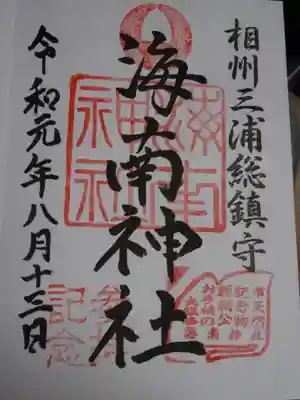 相州三浦総鎮守
海南神社
令和元年八月十三日
参拝
記念